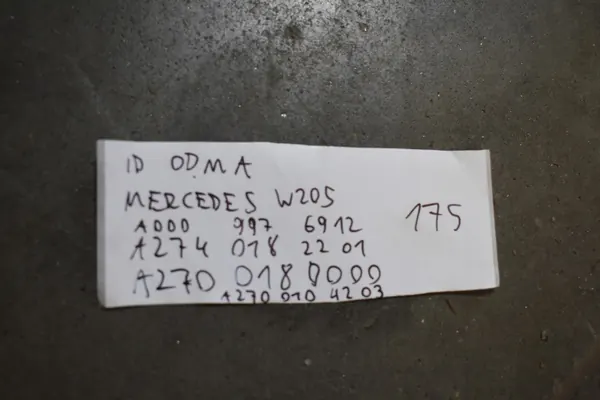 ID ODMA
MERCEDES W205
A000 997 6912
175
A274 018 22 01
A270 018 0000
A270 010 42 03